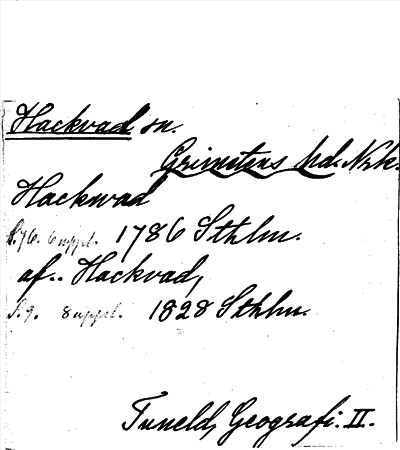 Hackvad sn.
Grimstens hd. Nrk.
Hackwad
S. 76. 6 uppl. 1786 Sthlm.
af.. Hackvad,
S. 9. 8 uppl. 1828 Sthlm.
Tuneld, Geografi. II.